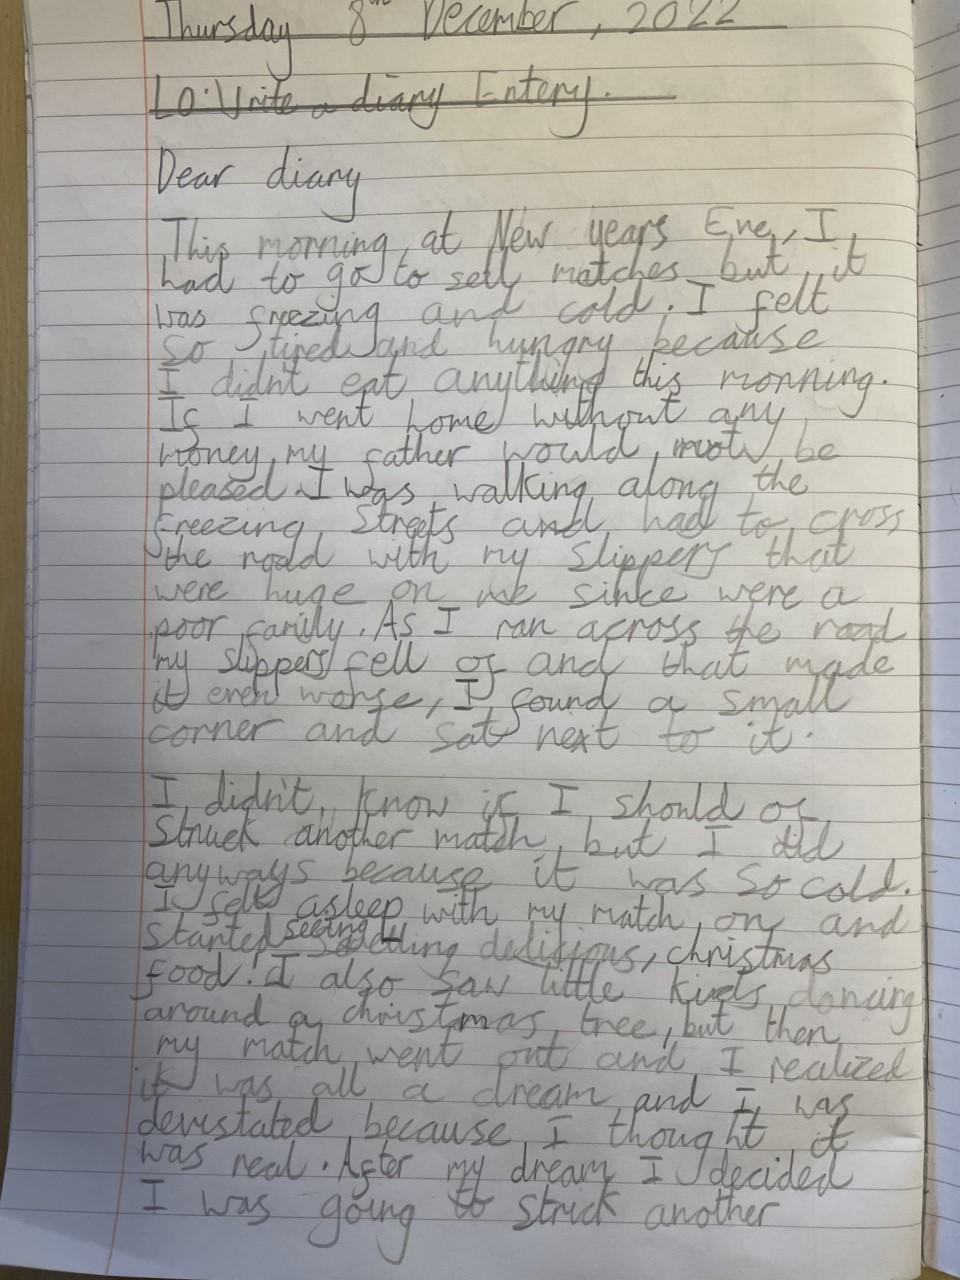 Thursday 8th December, 2022
LO: Write a diary Entery.
Dear diary
This morning, at New years Eve, I
had to go to sell matches but it
was freezing and cold. I felt
so tired and hungry because
I didn't eat anything this monning.
If I went home without any
money, my father would not be
pleased. I was walking along the
freezing streets and had to cross
the roald with my slippers that
were huge on me sinke were a
poor family. As I ran across the road
my slippers fell of and that made
it even worse, I found a small
corner and sat next to it.
I didn't know if I should of
struck another match, but I did
anyways because it was so cold.
I fell asleep with my match on and
started seeing delisious, christmas
food! I also saw little kids dancing
around a christmas tree, but then
my match went out and I realized
it was all a dream and I was
devistated because I thought it
was real. After my dream I decided
I was going to strick another